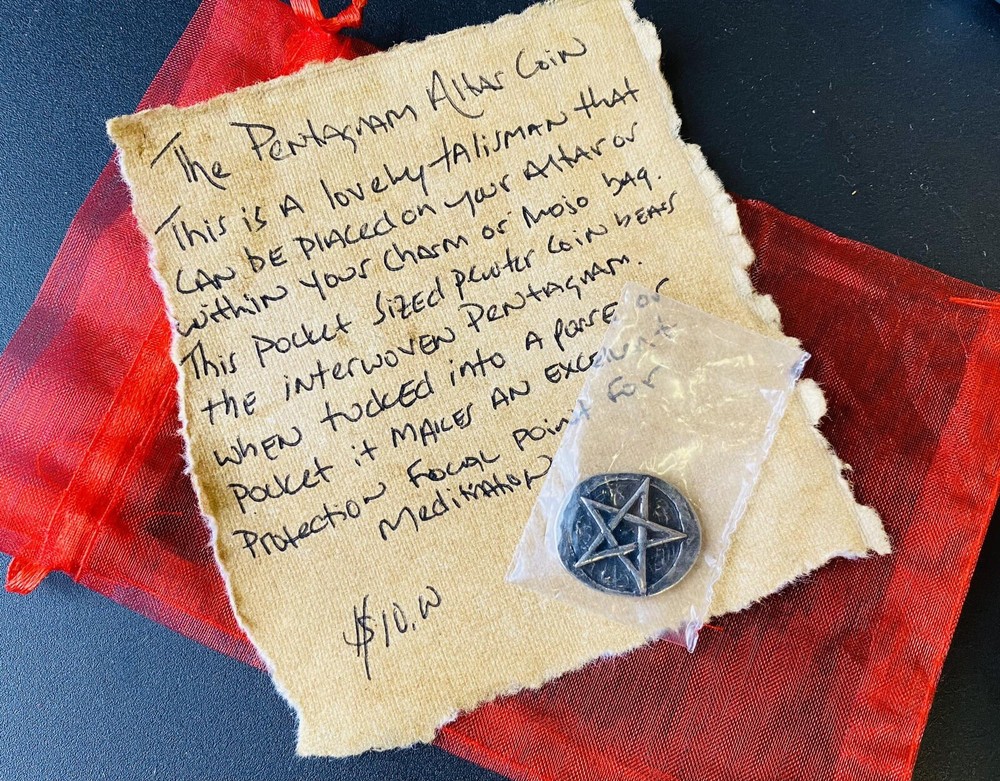 The Pentagram Altar Coin
This is A lovely talisman that
can be placed on your Altar or
within your charm or mojo bag.
This pocket sized pewter coin bears
the interwoven Pentagram.
When tucked into a purse or
pocket it makes an excellent
Protection Focal point for
Meditation
$10.00